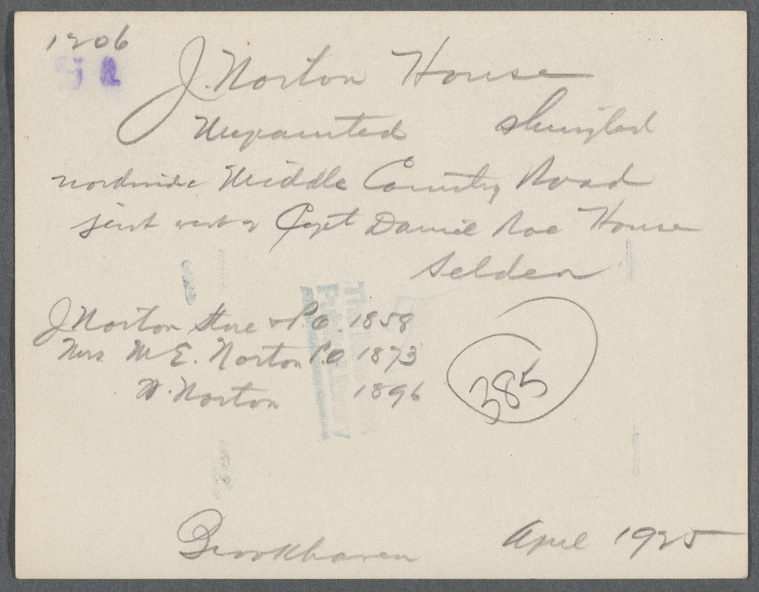 1206
J. Norton House
Unpainted shingled
northside Middle Country Road
just west of Capt Daniel Roe House
Selden
J Norton Store & P.O. 1858
Mrs. M E. Norton P.O 1873
W. Norton 1896
385
Brookhaven April 1925